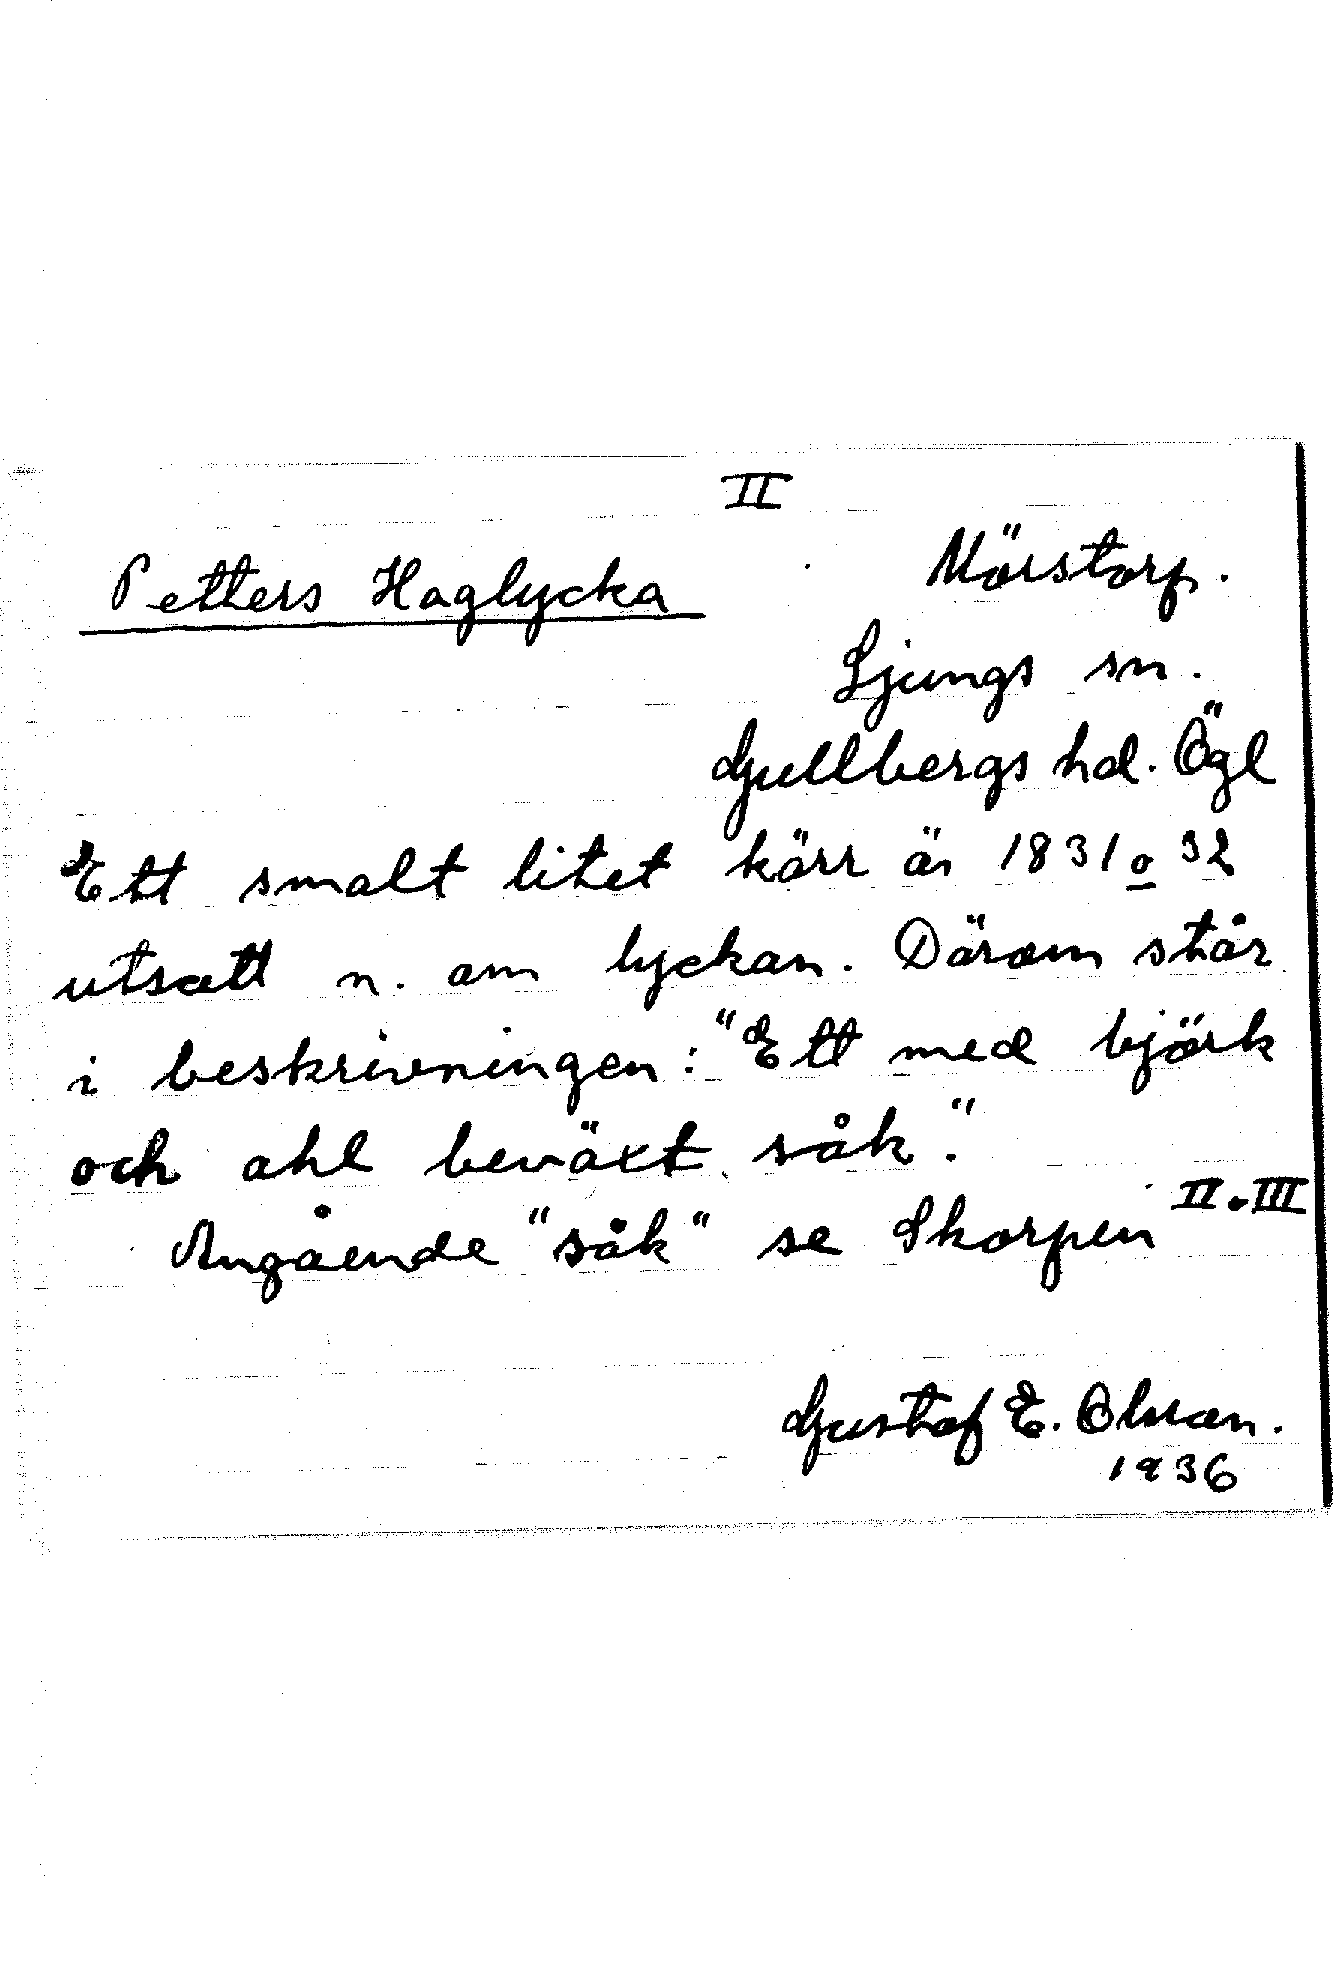 II
Petters Haglycka
Mörstorp.
Ljungs sn.
Gullbergs hd. Ögl
Ett smalt litet kärr är 1831 o 32
utsatt n. om lyckan. Därom står
i beskrivningen: "Ett med björk
och ahl beväxt såk."
Angående "såk" se Skorpen II. III
Gustaf E. Olsson.
1936